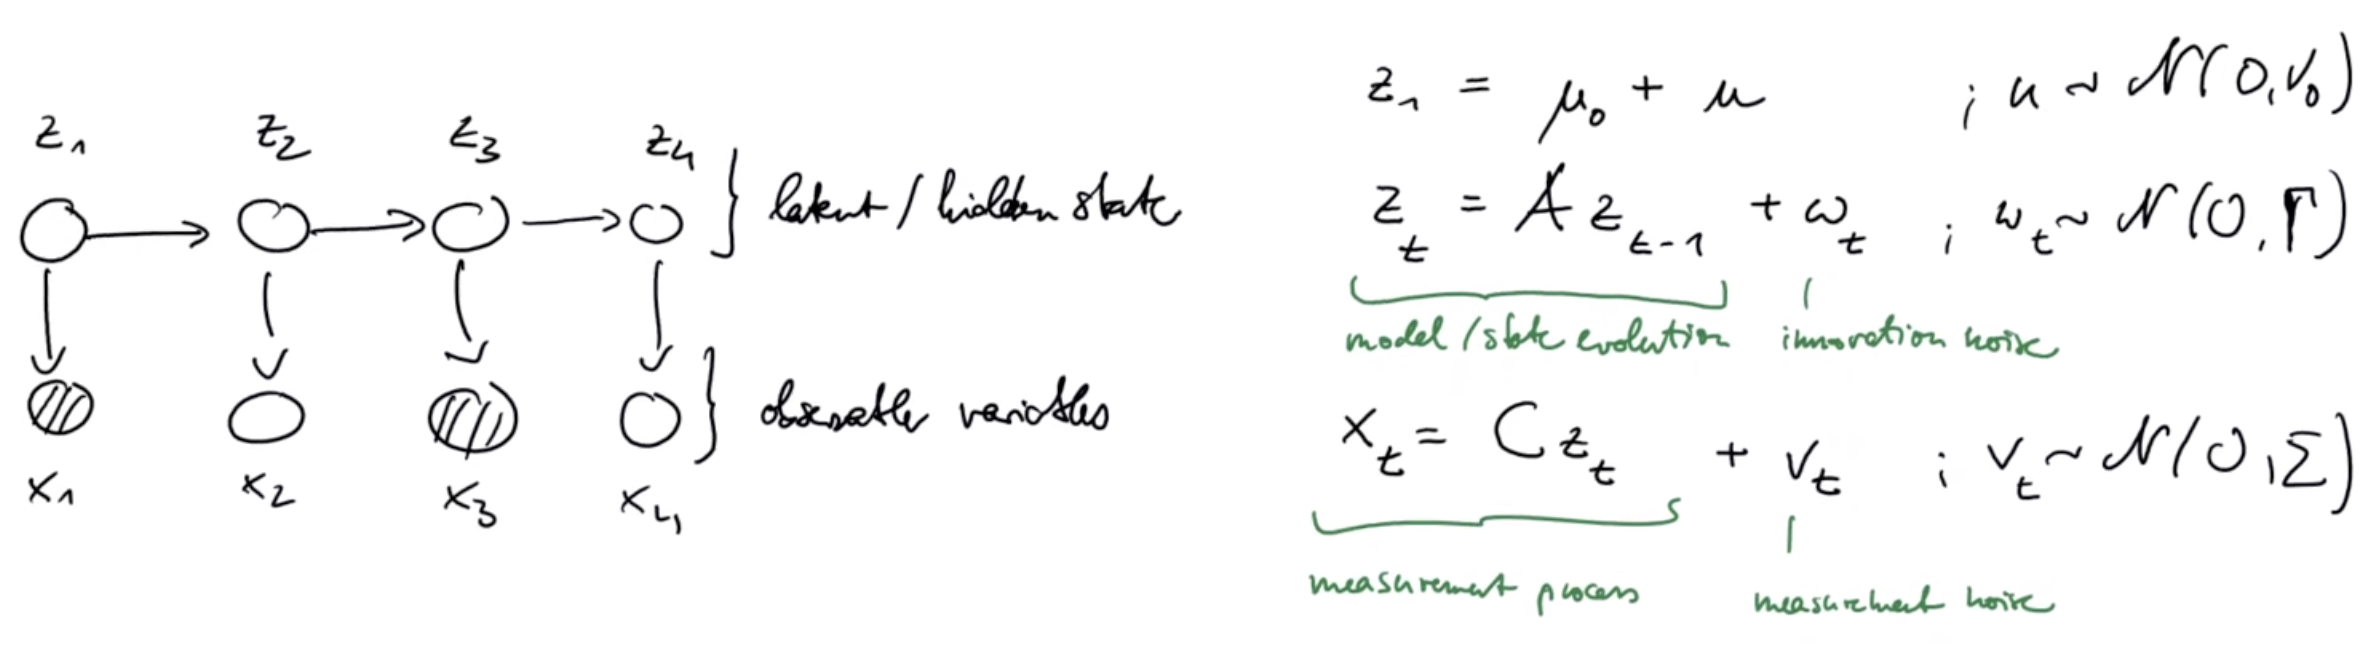 z₁ z₂ z₃ z₄
latent / hidden state
observable variables
x₁ x₂ x₃ x₄
z₁ = μ₀ + u ; u ~ N(0, V₀)
z_t = A z_{t-1} + ω_t ; w_t ~ N(0, Γ)
model / state evolution innovation noise
x_t = C z_t + v_t ; v_t ~ N(0, Σ)
measurement process measurement noise